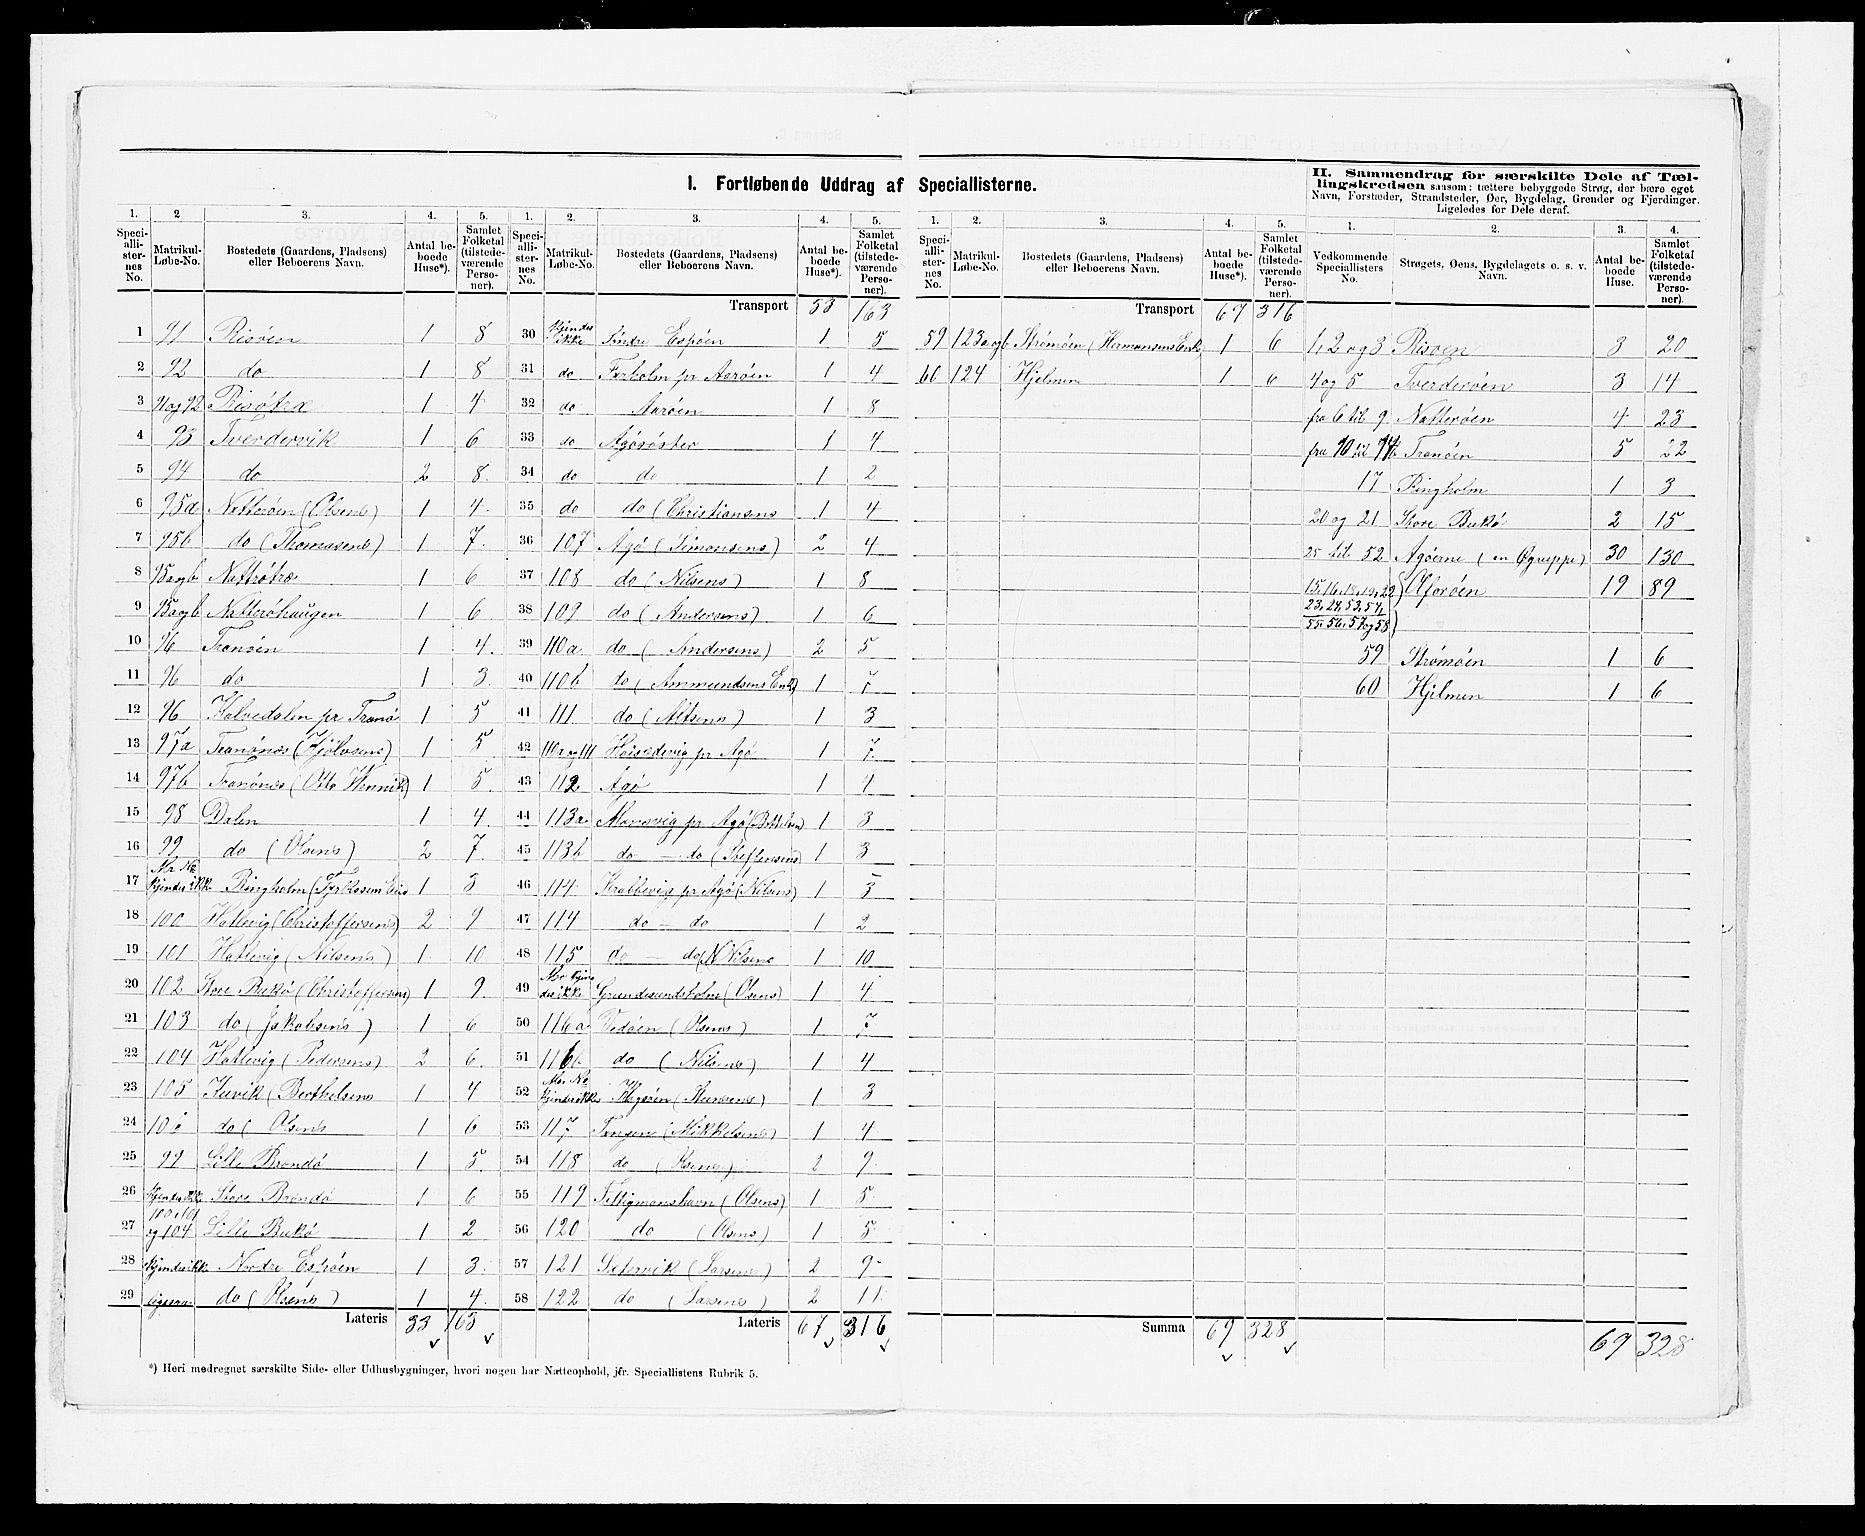 I. Fortløbende Uddrag af Speciallisterne.
II. Sammendrag for særskilte Dele af Tæl-
lingskredsen saasom: tættere bebyggede Strøg, der bære eget
Navn, Forstæder, Strandsteder, Øer, Bygdelag, Grender og Fjerdinger.
Ligeledes for Dele deraf.
1. 2 3. 4. 5.
Speci-alli-ster-nes No. Matrikul-Løbe-No. Bostedets (Gaardens, Pladsens) eller Beboerens Navn. Antal be-boede Huse*). Samlet Folketal (tilstede-værende Perso-ner).
1 91 Risöen 1 8
2 92 do 1 8
3 91 og 92 Risötræ 1 4
4 93 Tverdervik 1 6
5 94 do 2 8
6 95a Natteröen (Olsens) 1 4
7 95b do (Thomasens) 1 7
8 95a og b Nattrötræ 1 6
9 95a og b Natteröhaugen 1 6
10 96 Tranöen 1 4
11 96 do 1 3
12 96 Kalvedalen pr Tranö 1 5
13 97a Tranönæs (Kjölvsens) 1 5
14 97b Tranönæs (Otto Hennik) 1 5
15 98 Dalen 1 4
16 99 do (Olsens) 2 7
17 Mr No kjendes ikke Ringholm 1 3
18 100 Hatlevig (Christoffersens) 2 9
19 101 Hatlevig (Nilsens) 1 10
20 102 Store Bukö (Christoffersens) 1 9
21 103 do (Jakobsens) 1 6
22 104 Hatlevig (Pedersens) 2 6
23 105 Kuvik (Berthelsens 1 4
24 106 do (Olsens 1 6
25 99 Lille Brandö 1 5
26 Kjendes ikke Store Brandö 1 6
27 100, 101 og 104 Lille Bukö 1 2
28 Kjendes ikke Nordre Espöen 1 3
29 ligesaa do (Olsens) 1 4
Lateris 33 163
*) Heri medregnet særskilte Side- eller Udhusbygninger, hvori nogen har Natteophold, jfr. Speciallistens Rubrik 5.
1. 2. 3. 4. 5.
Speci-alli-ster-nes No. Matrikul-Løbe-No. Bostedets (Gaardens, Pladsens) eller Beboerens Navn. Antal be-boede Huse*). Samlet Folketal (tilstede-værende Perso-ner).
Transport 33 163
30 kjendes ikke Söndre Espöen 1 5
31 do Farholm pr Aaröen 1 4
32 do Aaröen 1 8
33 do Agösöster 1 4
34 do do 1 2
35 do do (Christiansens 1 4
36 107 Agö (Simonsens) 2 4
37 108 do (Nilsens) 1 8
38 109 do (Andersens) 1 6
39 110a do (Andersens) 2 5
40 110b do (Ammundsens Enke) 1 7
41 111 do (Nilsens) 1 3
42 110a og 111 pr Agö 1 7
43 112 Agö 1 4
44 113a pr Agö (Berthelsen) 1 3
45 113b do — do (Steffensens) 1 3
46 114 Krabbevig pr Agö (Nilsens) 1 3
47 114 do — do 1 2
48 115 do — do (N Nilsens 1 10
49 Mr kjendes ikke Grundesundsholme (Olsens) 1 4
50 116a Vedöen (Olsens) 1 7
51 116b do (Nilsens) 1 4
52 Mr No kjendes ikke (Hansens) 1 3
53 117 Tangen (Mikkelsens) 1 4
54 118 do (Olsens) 2 9
55 119 (Olsens) 1 5
56 120 do (Olsens) 1 5
57 121 Sætervik (Larsens) 2 9
58 122 do (Larsens) 2 11
Lateris 67 316
1. 2. 3. 4. 5.
Speci-alli-ster-nes No. Matrikul-Løbe-No. Bostedets (Gaardens, Pladsens) eller Beboerens Navn. Antal be-boede Huse*). Samlet Folketal (tilstede-værende Perso-ner).
Transport 67 316
59 123a og b Strömöen (Hermansens Enke) 1 6
60 124 Hjelmen 1 6
Summa 69 328
1. 2. 3. 4.
Vedkommende Speciallisters No. Strøgets, Øens, Bygdelagets o. s. v. Navn. Antal be-boede Huse. Samlet Folketal (tilstede-værende Perso-ner).
1, 2 og 3 Risöen 3 20
4 og 5 Tverderöen 3 14
fra 6 til 9 Natteröen 4 23
fra 10 til 14 Tranöen 5 22
17 Ringholm 1 3
20 og 21 Store Bukö 2 15
25 til 52 Agöerne (en Øgruppe) 30 130
15, 16, 18, 19, 22 } Oforöen 19 89
23, 24, 53, 54,
55, 56, 57 og 58
59 Strömöen 1 6
60 Hjelmen 1 6
69 328